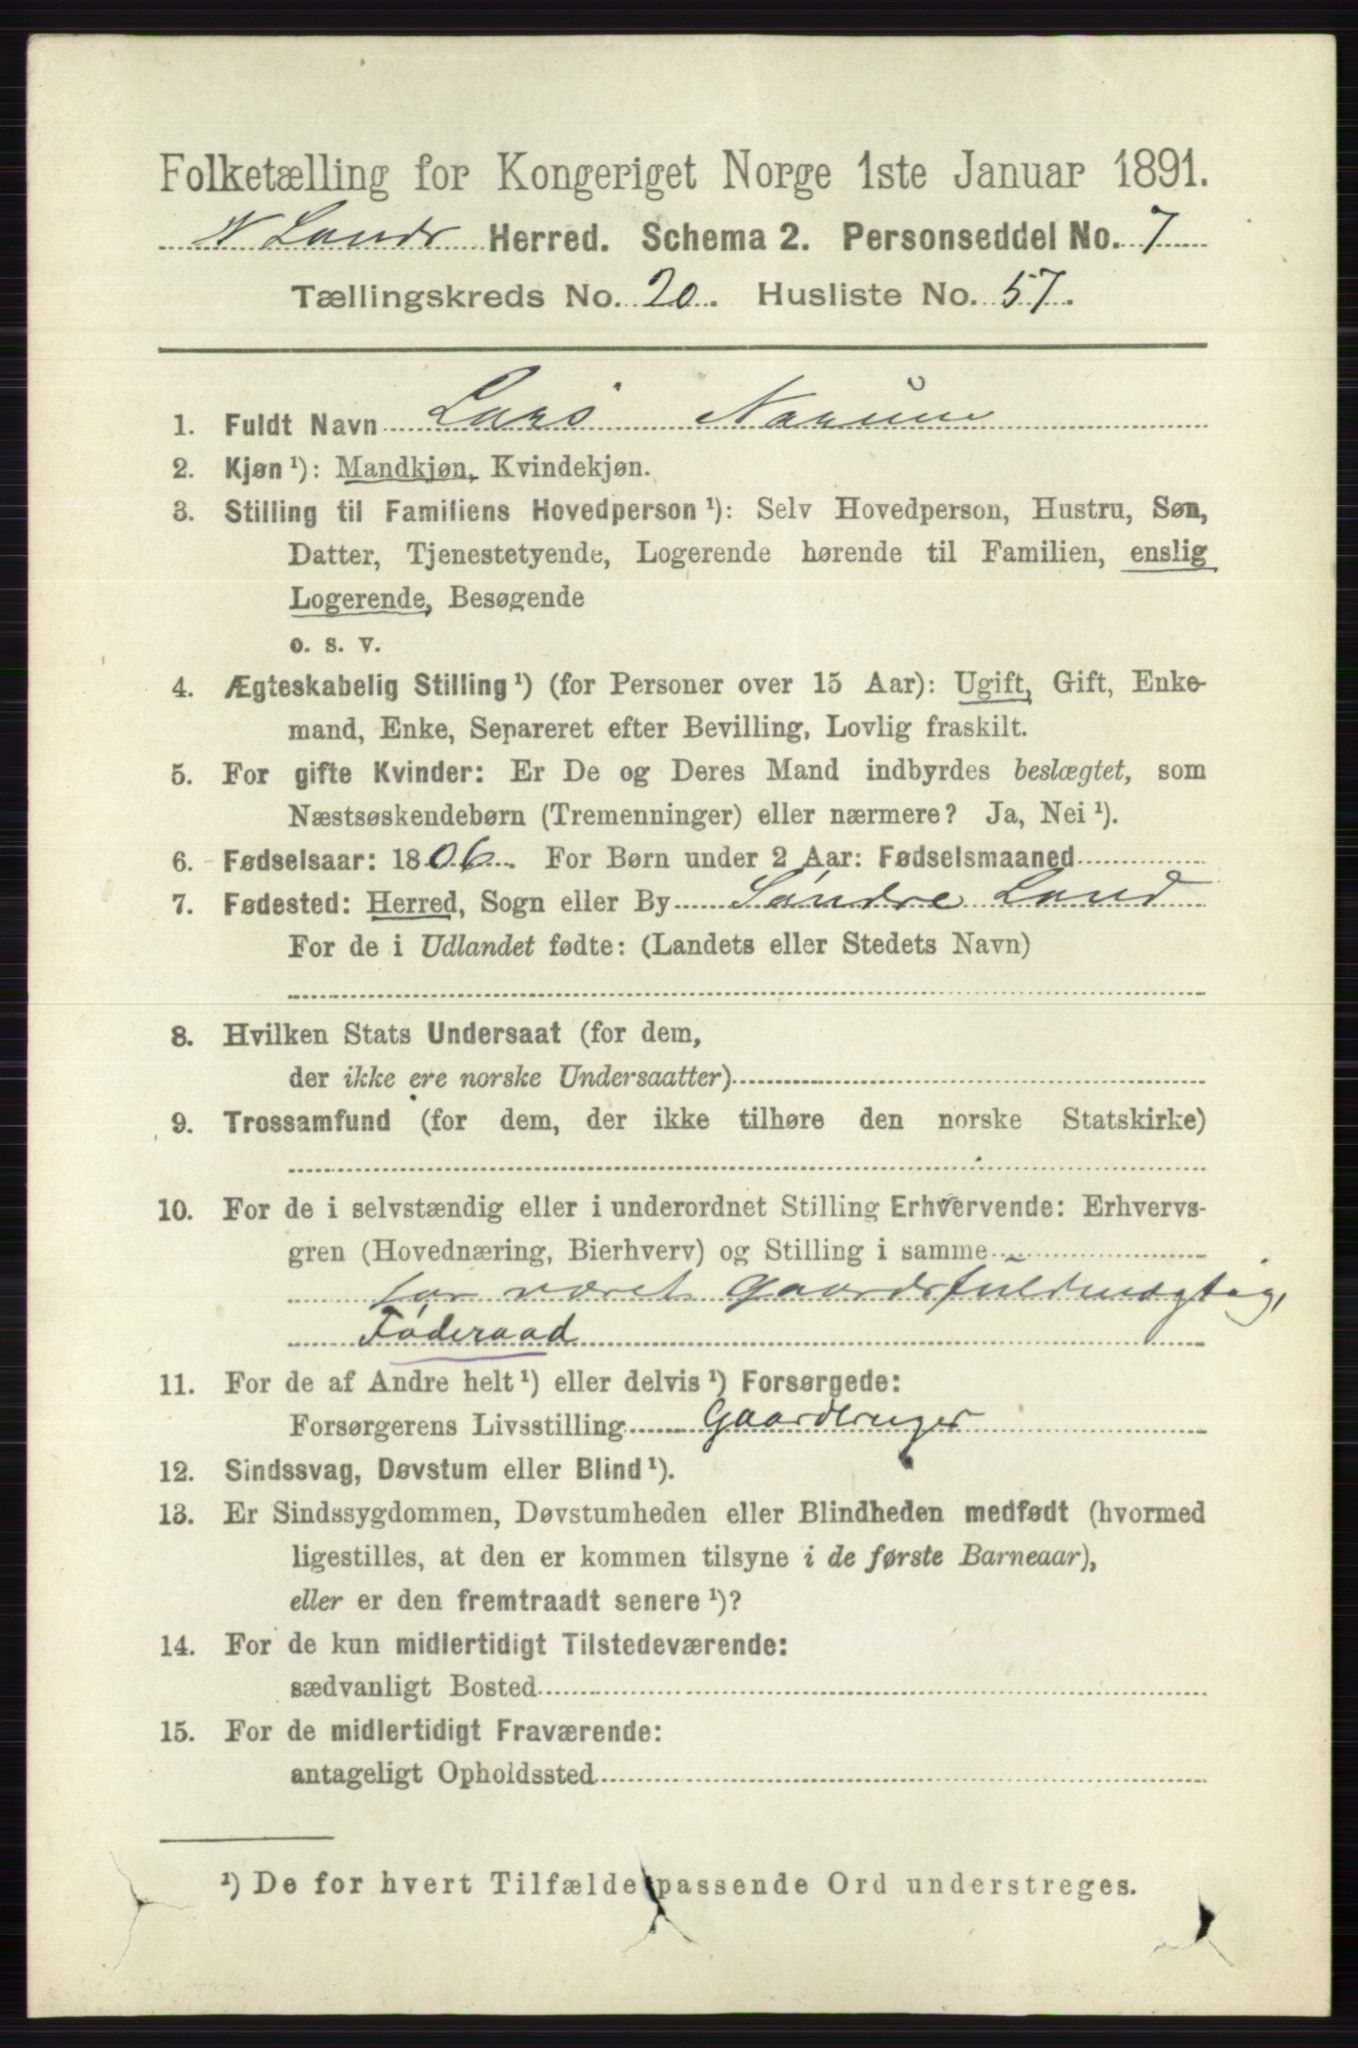 Folketælling for Kongeriget Norge 1ste Januar 1891.
N Lands Herred. Schema 2. Personseddel No. 7
Tællingskreds No. 20. Husliste No. 57.
1. Fuldt Navn Lars Narum
2. Kjøn ¹): Mandkjøn, Kvindekjøn.
3. Stilling til Familiens Hovedperson ¹): Selv Hovedperson, Hustru, Søn,
Datter, Tjenestetyende, Logerende hørende til Familien, enslig
Logerende, Besøgende
o. s. v.
4. Ægteskabelig Stilling ¹) (for Personer over 15 Aar): Ugift, Gift, Enke-
mand, Enke, Separeret efter Bevilling, Lovlig fraskilt.
5. For gifte Kvinder: Er De og Deres Mand indbyrdes beslægtet, som
Næstsøskendebørn (Tremenninger) eller nærmere? Ja, Nei ¹).
6. Fødselsaar: 1806. For Børn under 2 Aar: Fødselsmaaned
7. Fødested: Herred, Sogn eller By Søndre Land
For de i Udlandet fødte: (Landets eller Stedets Navn)
8. Hvilken Stats Undersaat (for dem,
der ikke ere norske Undersaatter)
9. Trossamfund (for dem, der ikke tilhøre den norske Statskirke)
10. For de i selvstændig eller i underordnet Stilling Erhvervende: Erhvervs-
gren (Hovednæring, Bierhverv) og Stilling i samme
har været Gaardsfuldmægtig,
Føderaad
11. For de af Andre helt ¹) eller delvis ¹) Forsørgede:
Forsørgerens Livsstilling Gaardbruger
12. Sindssvag, Døvstum eller Blind ¹).
13. Er Sindssygdommen, Døvstumheden eller Blindheden medfødt (hvormed
ligestilles, at den er kommen tilsyne i de første Barneaar),
eller er den fremtraadt senere ¹)?
14. For de kun midlertidigt Tilstedeværende:
sædvanligt Bosted
15. For de midlertidigt Fraværende:
antageligt Opholdssted
¹) De for hvert Tilfælde passende Ord understreges.